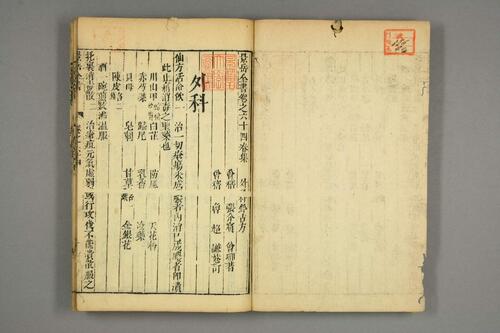 景岳全書卷之六十四春集 外科鈐古方
會稽 張介賓 會卿著
會稽 魯超 謙菴訂
外科
仙方活命飲一 治一切瘡瘍未成膿者內消已成膿者即潰
此止痛消毒之聖藥也
川山甲 白芷 防風 天花粉
赤芍藥 歸尾 乳香 沒藥
貝母 皂刺 甘草 金銀花
陳皮
酒一碗煎數沸溫服
托裏消毒散二 治瘡疽元氣虛弱或行攻伐不能潰散服之